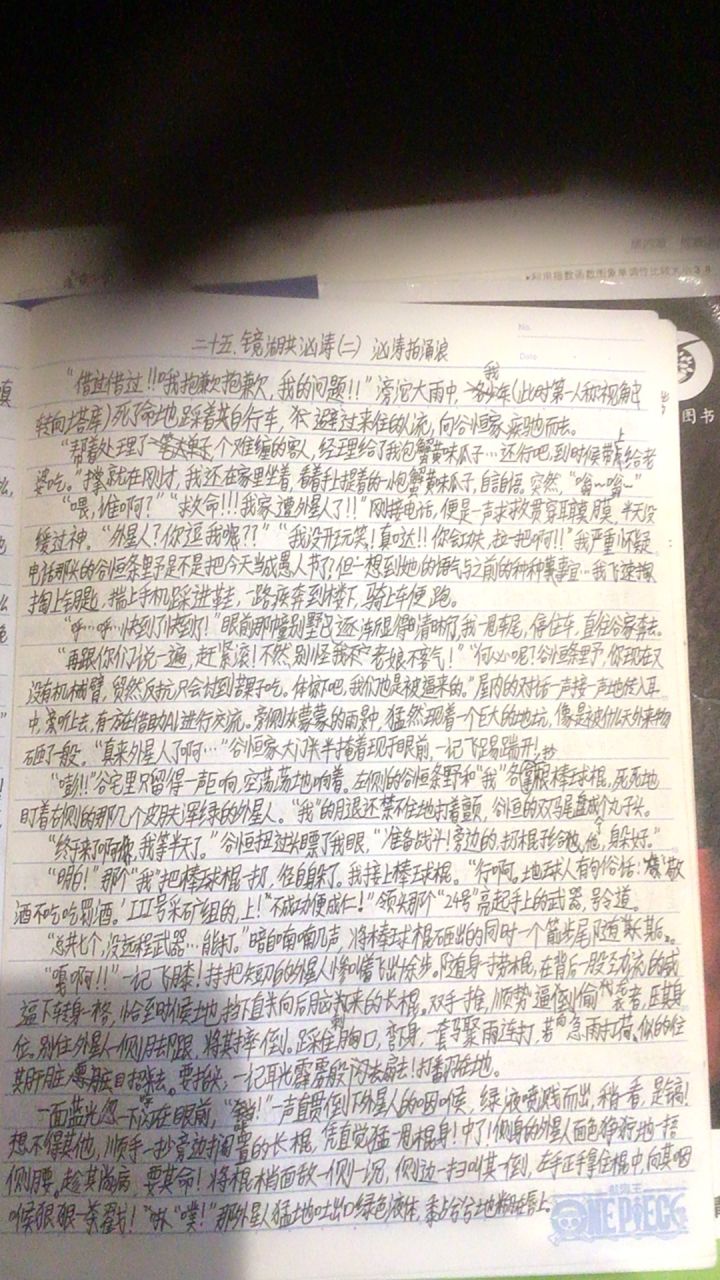 ▸利用指数函数图象单调性比较大小3.8
图书
No.
Date
二十五.镜湖共汹涛(二) 汹涛拍涌浪
"借过借过!!哦抱歉抱歉,我的问题!!"滂沱大雨中,我(此时第一人称视角
转向)死了命地踩着共自行车,避过来往的人流,向谷恒家疾驰而去。
"帮着处理了一笔大单子,个难缠的客人,经理给了我包蟹黄味瓜子…还行吧,到时候带上给老
婆吃。"就在刚才,我还在家里坐着,看着手上提着的一小包蟹黄味瓜子,自言自语。突然,"嗡~嗡~"
"喂,谁啊?""救命!!!我家遭外星人了!!"刚接电话,便是一声求救贯穿耳膜,半天没
缓过神。"外星人?你逗我呢??""我没开玩笑!真哒!!你会功夫,拉一把啊!!"我严重怀疑
电话那头的谷恒条野是不是把今天当成愚人节?但一想到她的语气与之前的种种事宜…我飞速掏
上钥匙,揣上手机踩进鞋,一路疾奔到楼下,骑上车便跑。
"呼…呼…快到了快到了!"眼前那幢别墅已逐渐显得清晰,我一甩车尾,停住车,直往谷家奔去。
"再跟你们说一遍,赶紧滚!不然,别怪老娘不客气!""何必呢?谷恒条野,你现在又
没有机械臂,贸然反抗只会讨到苦子吃。体谅下吧,我们也是被逼来的。"屋内的对话一声接一声地传入耳
中,旁听上去,有方在借助AI进行交流。旁侧灰蒙蒙的雨景中,猛然现着一个巨大的地坑,像是被什么天外来物
砸了一般。"真来外星人了啊…"谷恒家大门半掩着现于眼前,一记飞踢踹开!
"嘭!!"谷宅里只留得一声巨响,空荡荡地响着。左侧的谷恒条野和"我"各抄根棒球棍,死死地
盯着右侧的那几个皮肤浑绿的外星人。"我"的腿还禁不住地打着颤,谷恒的双马尾盘成个丸子头。
"终于来了啊,我等半天了。"谷恒扭过头瞟了我眼,"准备战斗!旁边的,扔棍子给他,躲好。"
"明白!"那个"我"把棒球棍一扔,径自躲了。我接上棒球棍。"行啊。地球人有句俗话:'敬
酒不吃吃罚酒。'III号采矿组的,上!不成功便成仁!"领头那个"24号"亮起手上的武器,号令道。
"总共七个,没远程武器…能打。"暗自喃喃几声,将棒球棍砸出的同时一个箭步尾随其后。
"啊!!"一记飞膝!持把短刀的外星人惨叫着飞出十余步。随身一持劳棍,在背后一股劲力的
逼下转身一格,恰至时候地挡下直头向后脑来的长棍。双手一推,顺势逼倒偷袭者,压其身
位。别住外星人一侧后脚跟,将其摔倒。踩住胸口,弯下身,一套马聚雨连打,若急雨打荷似的往
其肝脏招来。要抬头,一记耳光霹雳般闪去扇去!打翻在地。
一面蓝光忽一下闪在眼前,"锵!"一声直贯倒下外星人的咽喉,绿液喷溅而出,稍一看,是镐!
想不得其他,顺手一抄旁边搁置的长棍,凭直觉猛一甩棍身!中了!侧身的外星人面色狰狞地一捂
侧腰。趁其尚病,要其命!将棍梢面敌一侧一沉,侧边一扫叫其一倒,左手正手拿住棍中,向其咽
喉狠狠一戳!"噗!"那外星人猛地吐出口绿色液体,黏兮兮地粘在唇上。
ONE PIECE